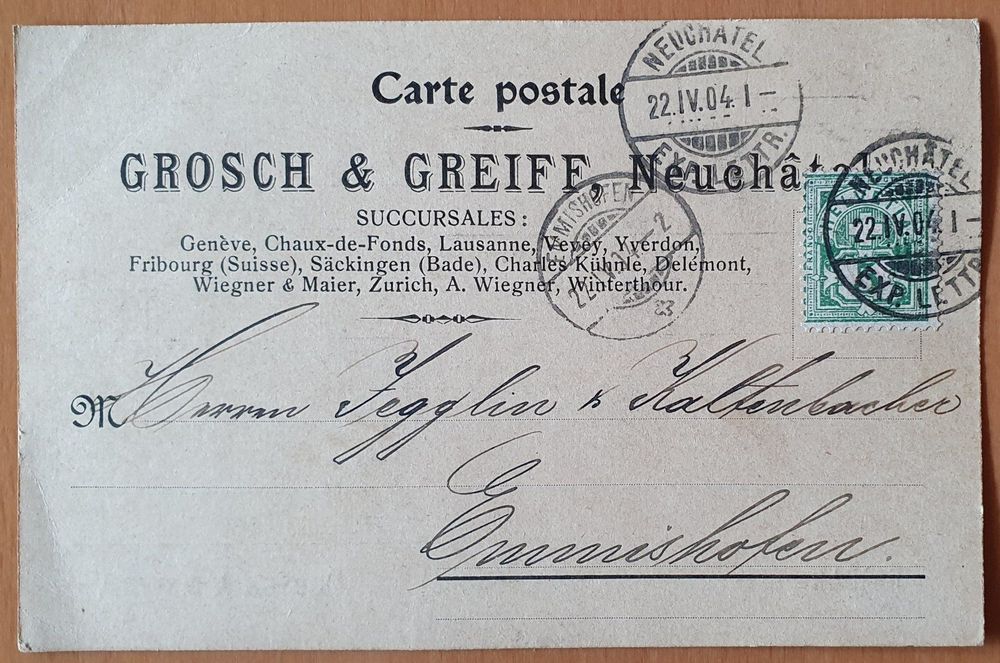 Carte postale
GROSCH & GREIFF, Neuchâtel
SUCCURSALES:
Genève, Chaux-de-Fonds, Lausanne, Vevey, Yverdon,
Fribourg (Suisse), Säckingen (Bade), Charles Kühnle, Delémont,
Wiegner & Maier, Zurich, A. Wiegner, Winterthour.
NEUCHATEL
22.IV.04. I –
EXP. LETTR.
NEUCHATEL
22.IV.04. I –
EXP. LETTR.
EMMISHOFEN
M Herren Jegglin & Kaltenbacher
Emmishofen.